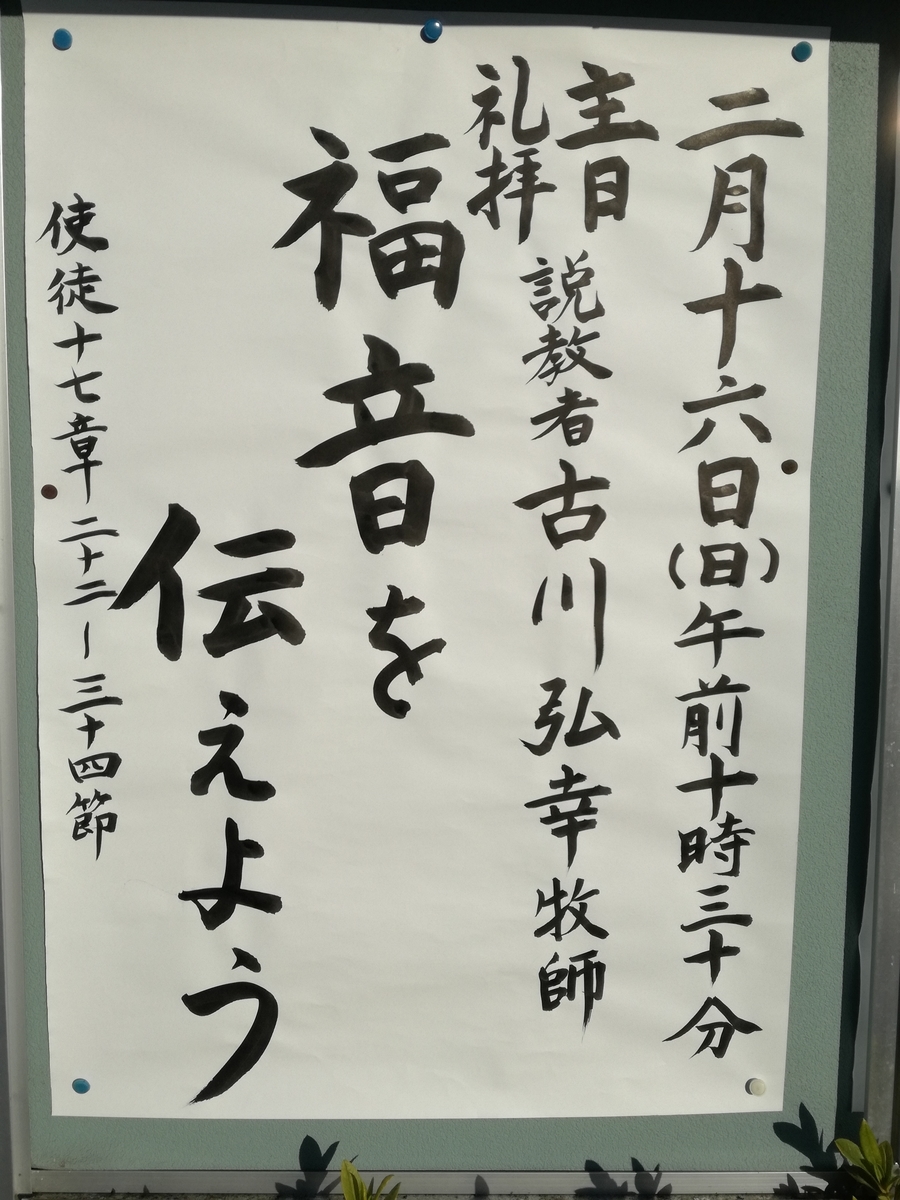 二月十六日(日)午前十時三十分
主日
礼拝
説教者 古川弘幸牧師
福音を
伝えよう
使徒十七章二十二ー三十四節